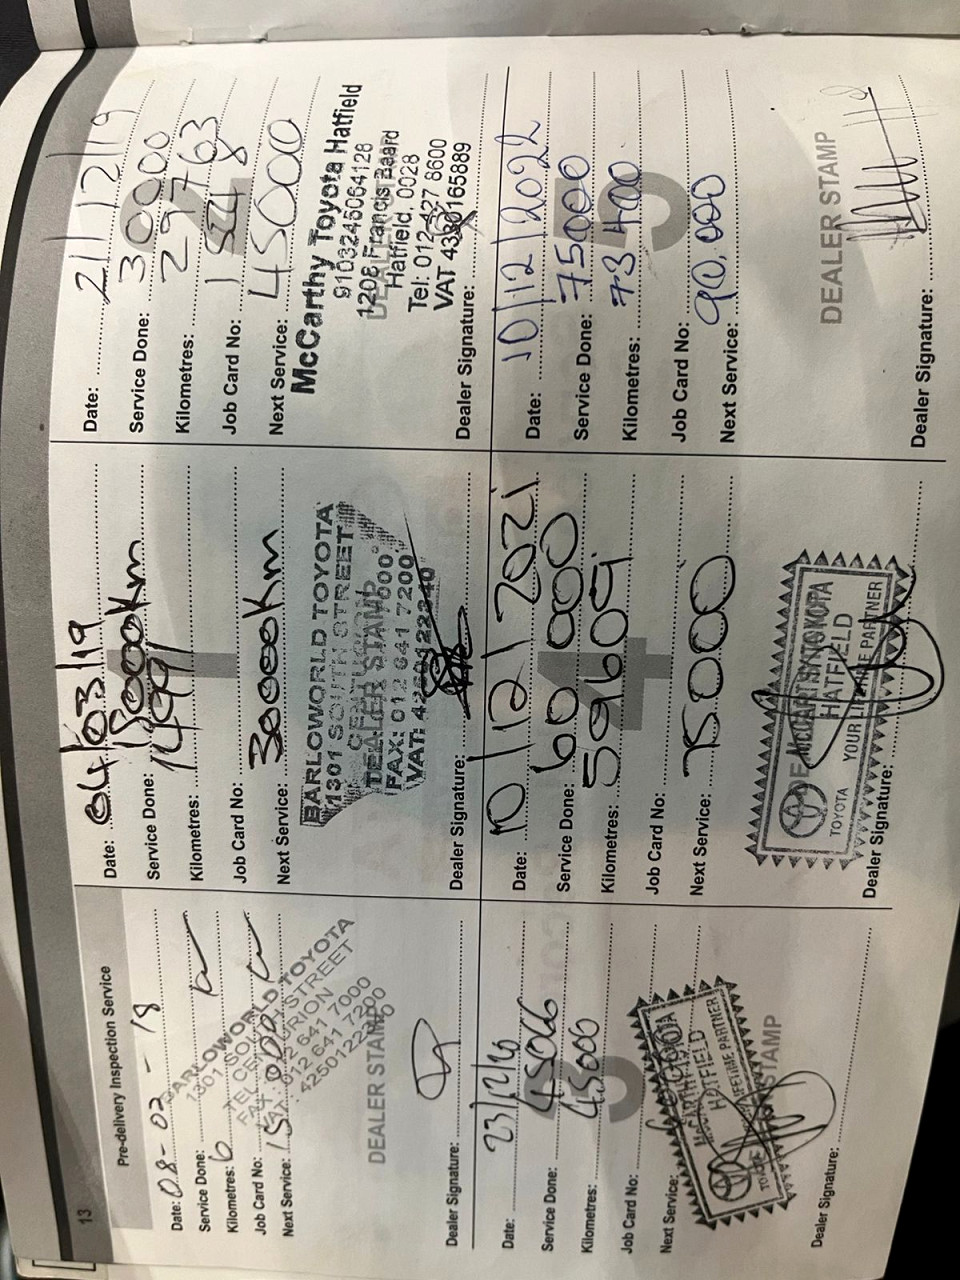 13
Pre-delivery Inspection Service
Date: 08-02-18
Service Done:
Kilometres: 6 km
Job Card No:
Next Service: 15000 km
BARLOWORLD TOYOTA
1301 SOUTH STREET
CENTURION
TEL: 012 641 7000
FAX: 012 641 7200
DEALER STAMP
Dealer Signature:
1
Date: 04/03/19
Service Done: 15000km
Kilometres: 14991
Job Card No:
Next Service: 30000km
BARLOWORLD TOYOTA
1301 SOUTH STREET
CENTURION
DEALER STAMP
FAX: 012 641 7200
Dealer Signature:
2
Date: 21/12/19
Service Done: 30000
Kilometres: 29763
Job Card No:
Next Service: 45000
McCarthy Toyota Hatfield
9103245064128
1208 Francis Baard
Hatfield, 0028
DEALER STAMP
Tel: 012 427 8600
VAT 4330165889
Dealer Signature:
3
Date:
Service Done:
Kilometres:
Job Card No:
Next Service:
McCARTHY TOYOTA
HATFIELD
TOYOTA YOUR LIFETIME PARTNER
STAMP
Dealer Signature:
4
Date: 10/12/2021
Service Done: 60 000
Kilometres: 59609
Job Card No:
Next Service: 75000
McCARTHY TOYOTA
HATFIELD
TOYOTA YOUR LIFETIME PARTNER
Dealer Signature:
5
Date: 10/12/2022
Service Done: 75000
Kilometres: 73 400
Job Card No:
Next Service: 90,000
DEALER STAMP
Dealer Signature: